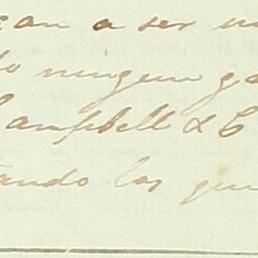 can a ser
ningun
Campbell & C
ando las que